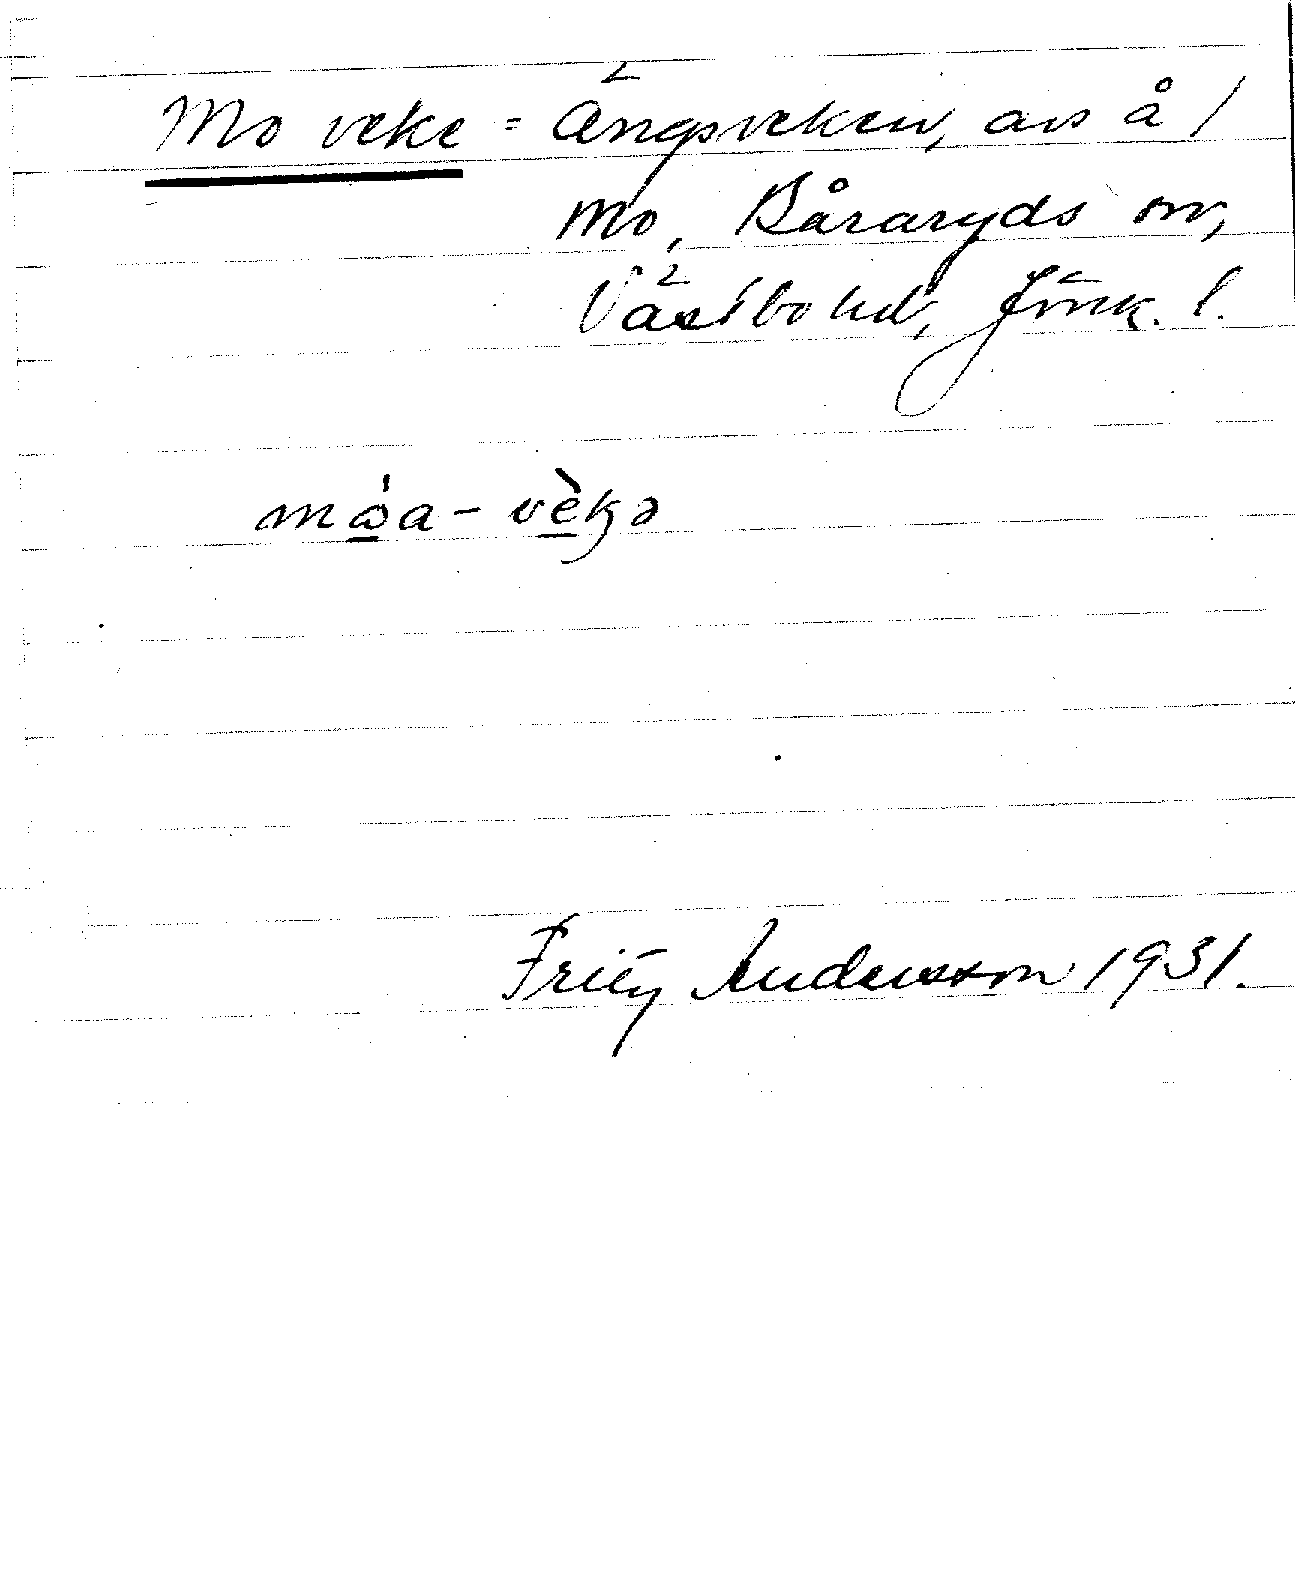 Mo veke = Ängsveken, avs å /
Mo, Båraryds sn,
Västbo hd, Jönk. l.
mѡ̀a-vèkə
Fritz Andersson 1931.